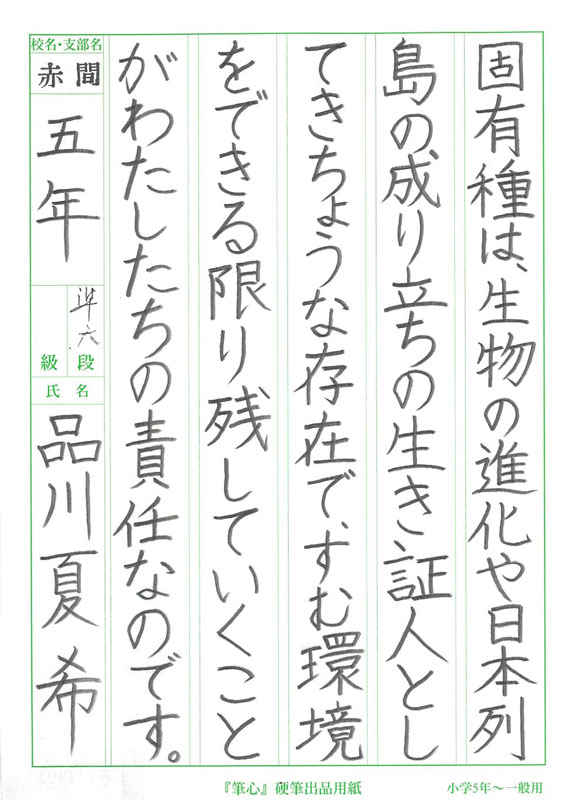 固有種は、生物の進化や日本列
島の成り立ちの生き証人とし
てきちょうな存在で、すむ環境
をできる限り残していくこと
がわたしたちの責任なのです。
校名・支部名
赤間
五年
準六
段
級
氏名
品川夏希
『筆心』硬筆出品用紙
小学5年～一般用